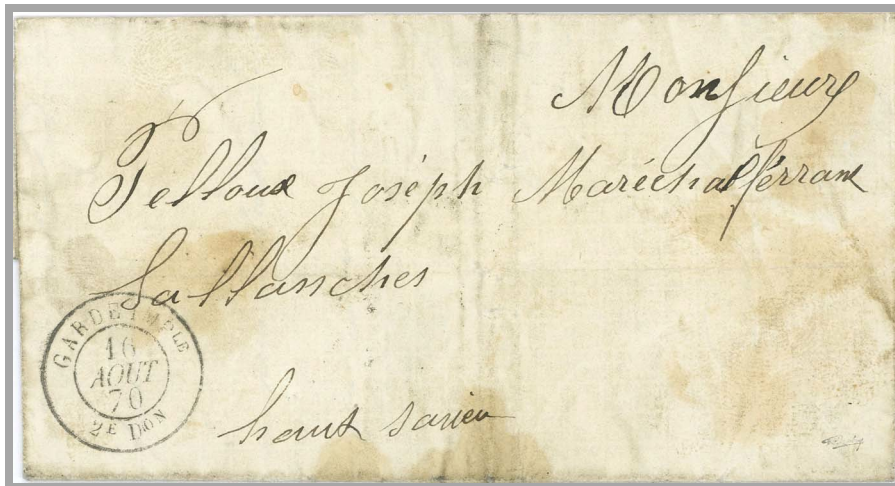 Monsieur
Pelloux Joséph Maréchal ferrant
Sallanches
haut savieu
GARDE IMPLE
16
AOUT
70
2E DON